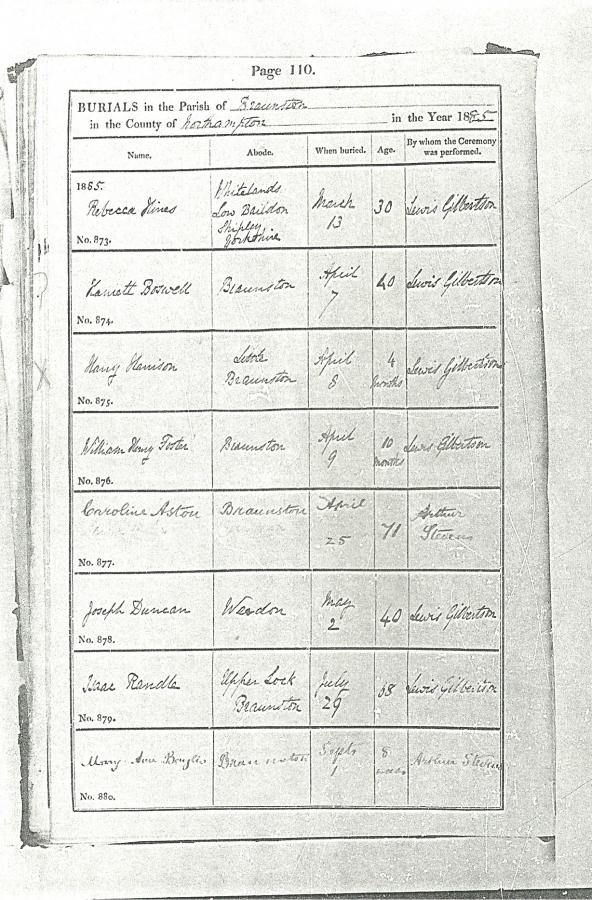 Page 110.
BURIALS in the Parish of Braunston
in the County of Northampton in the Year 1885
Name. Abode. When buried. Age. By whom the Ceremony was performed.
1885.
Rebecca Hines
No. 873.
Whitelands
Low Baildon
Shipley
Yorkshire
March
13
30
Lewis Gilbertson
Harriett Boswell
No. 874.
Braunston
April
7
40
Lewis Gilbertson
Harry Harrison
No. 875.
Little
Braunston
April
8
4
months
Lewis Gilbertson
William Henry Foster
No. 876.
Braunston
April
9
10
months
Lewis Gilbertson
Caroline Aston
No. 877.
Braunston
April
25
71
Arthur
Stevens
Joseph Duncan
No. 878.
Weedon
May
2
40
Lewis Gilbertson
Isaac Randle
No. 879.
Upper Lock
Braunston
July
29
68
Lewis Gilbertson
Mary Ann
No. 880.
Braunston
Septr
1
8
Arthur Stevens